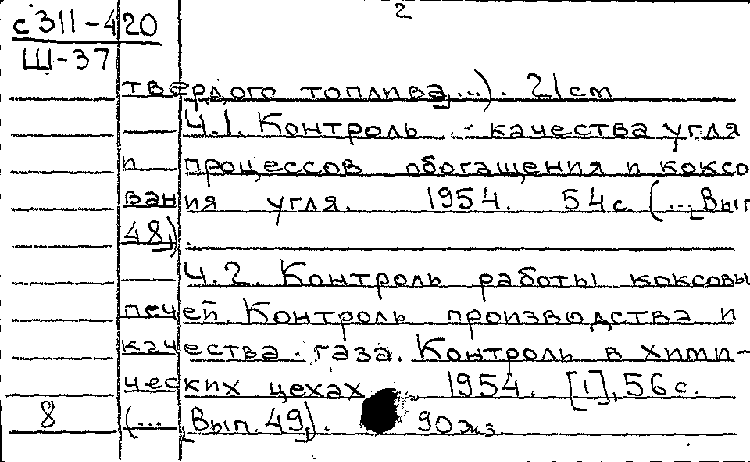 2
с311-420
Ш-37
твердого топлива,...). 21см
Ч.1. Контроль качества угля
и процессов обогащения и коксо
вания угля. 1954. 54с (...Вып.
48).
Ч.2. Контроль работы коксовы
печей. Контроль производства и
качества газа. Контроль в хими-
ческих цехах 1954. [1], 56с.
8 (... Вып. 49). 90экз